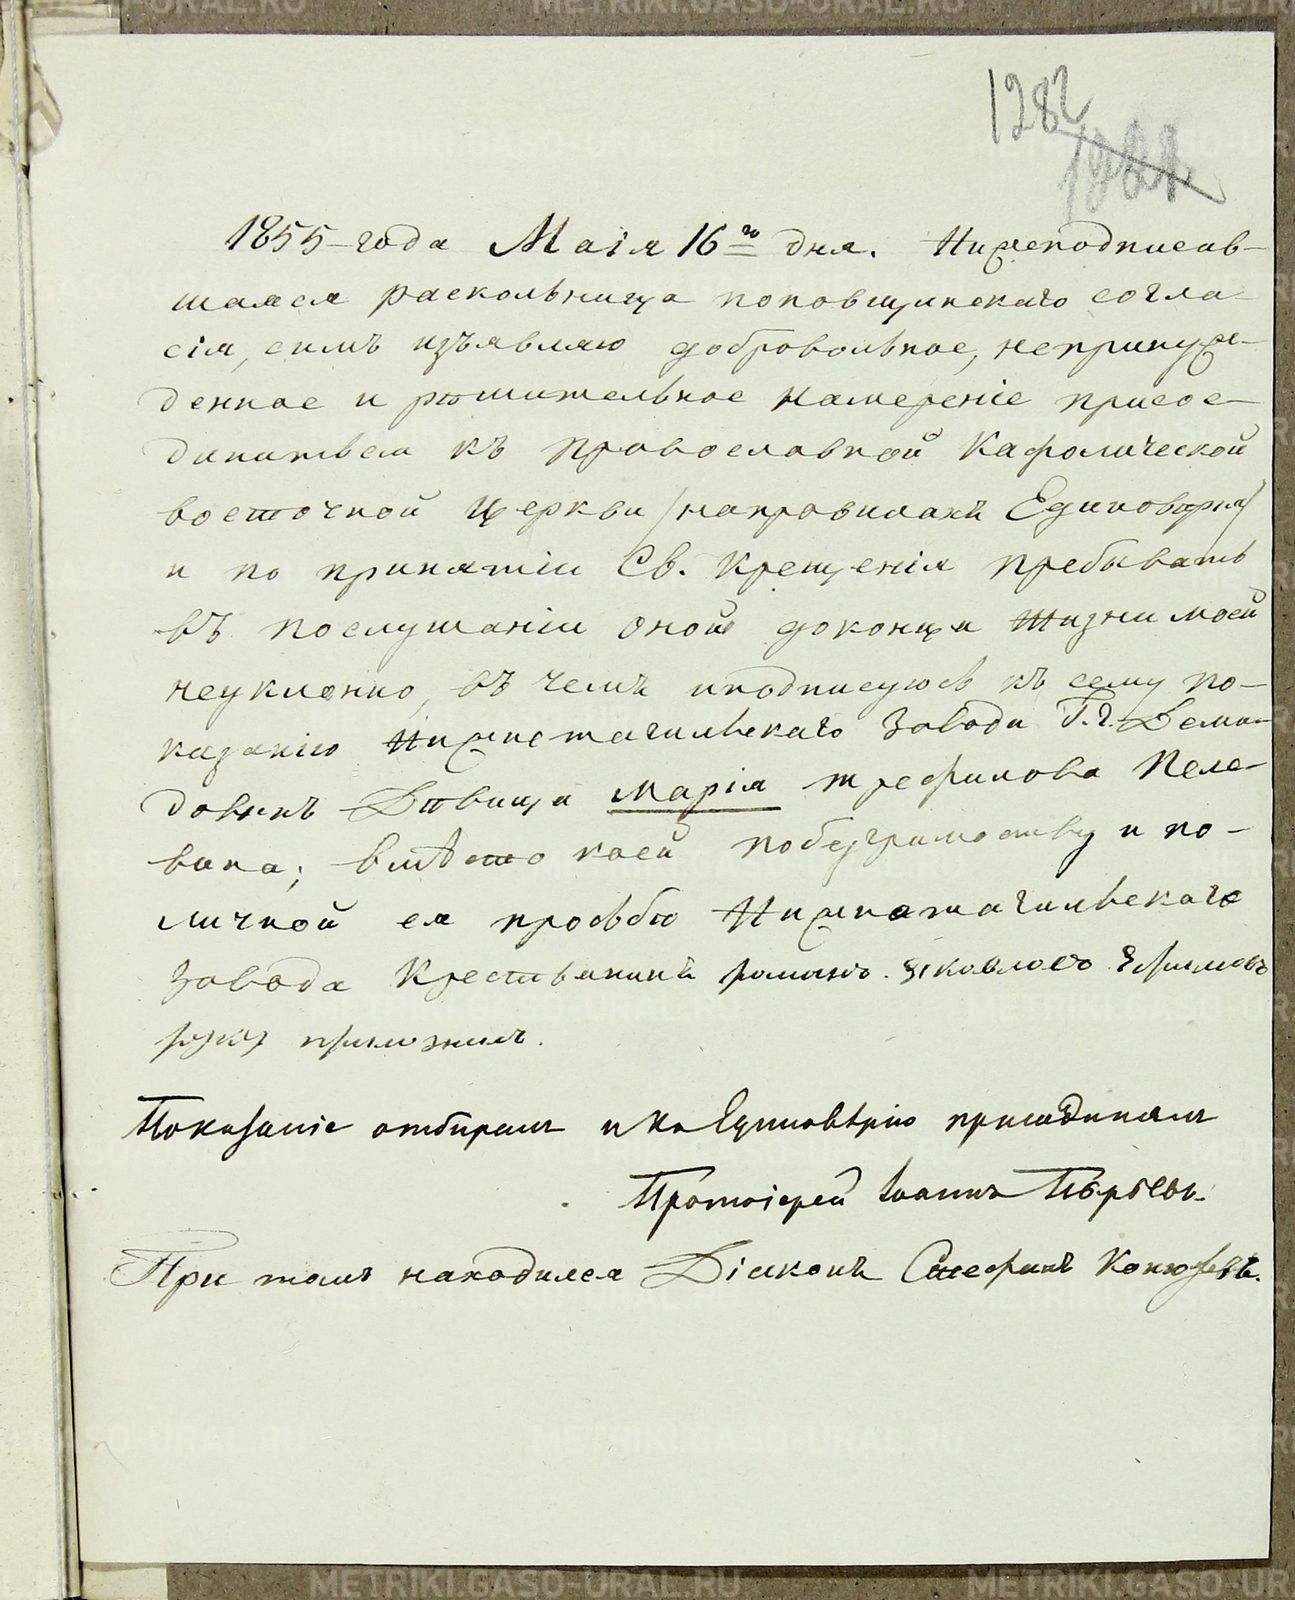 1282
1855 года Маія 16го дня. Нижеподписав-
шаяся раскольница поповщинскаго согла-
сія, симъ изъявляю добровольное, непринуж-
денное и рѣшительное намереніе присое-
диниться къ православной Кафолической
восточной церкви /на правилахъ Единоверія/
и по принятіи Св. Крещенія пребывать
въ послушаніи оной до конца жизни моей
неуклонно, въ чемъ и подписуюсь къ сему по-
казанію Нижнетагильскаго завода Г.г. Деми-
довыхъ Дѣвица Марія Трефилова Пеле-
вина; вмѣсто коей по безграмотству и по
личной ея прозьбѣ Нижнетагильскаго
завода Крестьянинъ романъ яковлевъ Ефимовъ
руку приложилъ.
Показаніе отбиралъ и къ Единовѣрію присоединялъ
Протоіерей Іоаннъ
При томъ находился Діаконъ Стефанъ
METRIKI.GASO-URAL.RU